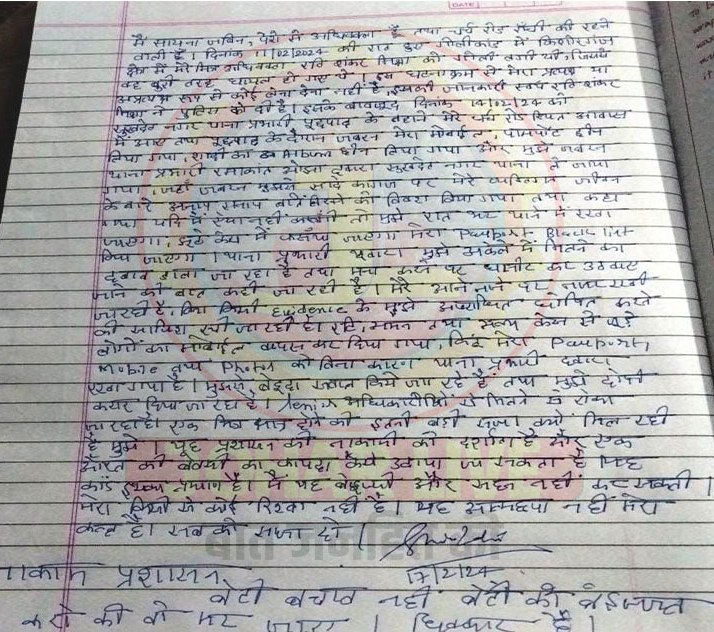 DATE
मैं सायना जबिन, पेशे से अधिवक्ता हूँ तथा चर्च रोड राँची की रहने
वाली हूँ। दिनांक 11/02/2024 की रात हुए गोलीकांड में किशोरगंज
क्षेत्र में मेरे मित्र अधिवक्ता रवि शंकर मिश्रा को गोली लगी थी जिससे
वह बुरी तरह घायल हो गए थे। इस घटनाक्रम से मेरा प्रत्यक्ष या
अप्रत्यक्ष रूप से कोई लेना देना नहीं है, इसकी जानकारी स्वयं रवि शंकर
मिश्रा ने पुलिस को दी है। इसके बावजूद दिनांक 14/02/24 को
सुखदेव नगर थाना प्रभारी पूछताछ के बहाने मेरे चर्च रोड स्थित आवास
में आए तथा पूछताछ के दौरान जबरन मेरा मोबाईल, पासपोर्ट छीन
लिया गया, छीन लिया गया और मुझे जबरन
थाना प्रभारी रमाकांत ओझा द्वारा सुखदेव नगर थाना ले जाया
गया, जहाँ जबरन मुझसे सादे कागज पर मेरे व्यक्तिगत जीवन
के बारे अनाप शनाप बातें लिखने को विवश किया गया तथा कहा
गया यदि मैं ऐसा नहीं करूंगी तो मुझे रात भर थाने में रखा
जाएगा, झूठे केस में फंसाया जाएगा मेरा Passport Black list
किया जाएगा। थाना प्रभारी द्वारा मुझे अकेले में मिलने का
दबाव डाला जा रहा है तथा मना करने पर घसीट कर उठवाए
जाने की बात कही जा रही है। मेरे आने जाने पर नजर रखी
जा रही है, बिना किसी Evidence के मुझे अपराधी घोषित करने
की साजिश रची जा रही है। तथा केस से जुड़े
लोगों का मोबाईल वापस कर दिया गया, किंतु मेरा Passport,
Mobile तथा Photos को बिना कारण थाना प्रभारी द्वारा
रखा गया है। मुझसे बेहूदा सवाल किये जा रहे हैं, तथा मुझे दोषी
करार दिया जा रहा है। Senior अधिकारीयों से मिलने से रोका
जा रहा है। एक मित्र होने की इतनी बड़ी सजा क्यों मिल रही
है मुझे। यह प्रशासन की नाकामी को दर्शाता है और एक
औरत की बेबसी का फायदा कैसे उठाया जा सकता है यह
कांड इसका प्रमाण है। मैं यह बेइज्जती और सहन नहीं कर सकती।
मेरा किसी से कोई रिश्वा नहीं है। यह आत्महत्या नहीं मेरा
कत्ल है। सब को सजा दो।
17/2/24
नाकाम प्रशासन
बेटी बचाव नहीं बेटी को बेइज्जत
करो की वो मर जाए। धिक्कार है।